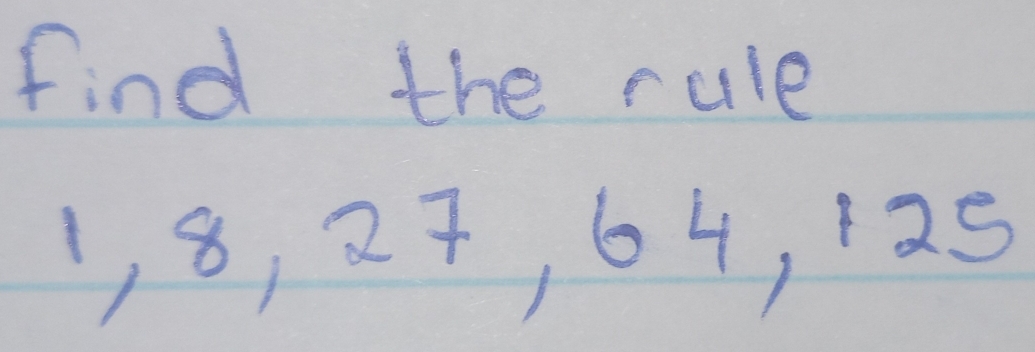 find the rule
1, 8, 27, 64, 125